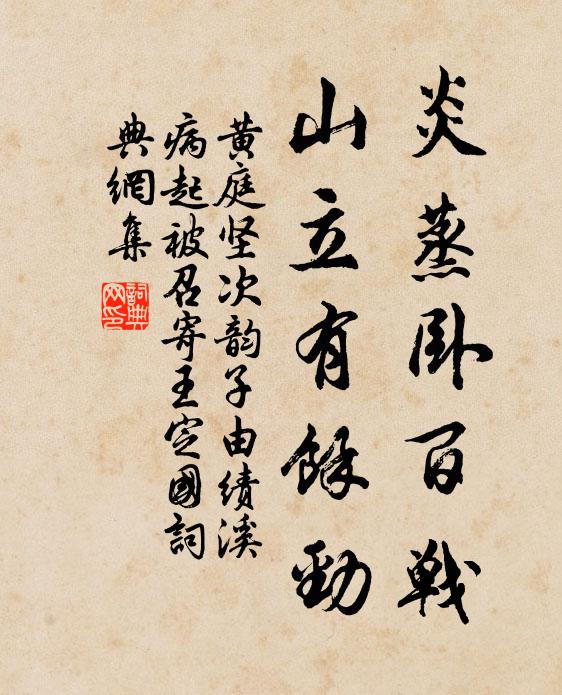 炎蒸卧百戰
山立有餘勁
黄庭坚次韵子由績溪
病起被召寄王定國詞
典網集
詞典网印